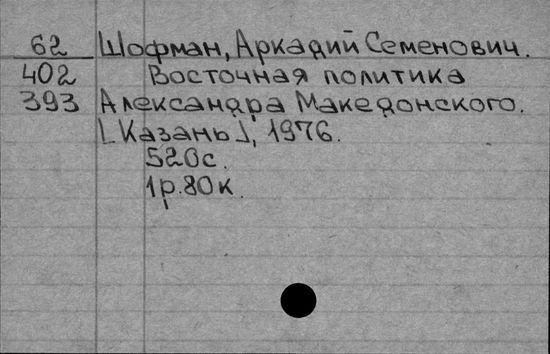 62 Шофман, Аркадий Семенович.
402 Восточная политика
393 Александра Македонского.
[Казань], 1976.
520с.
1р.80к.